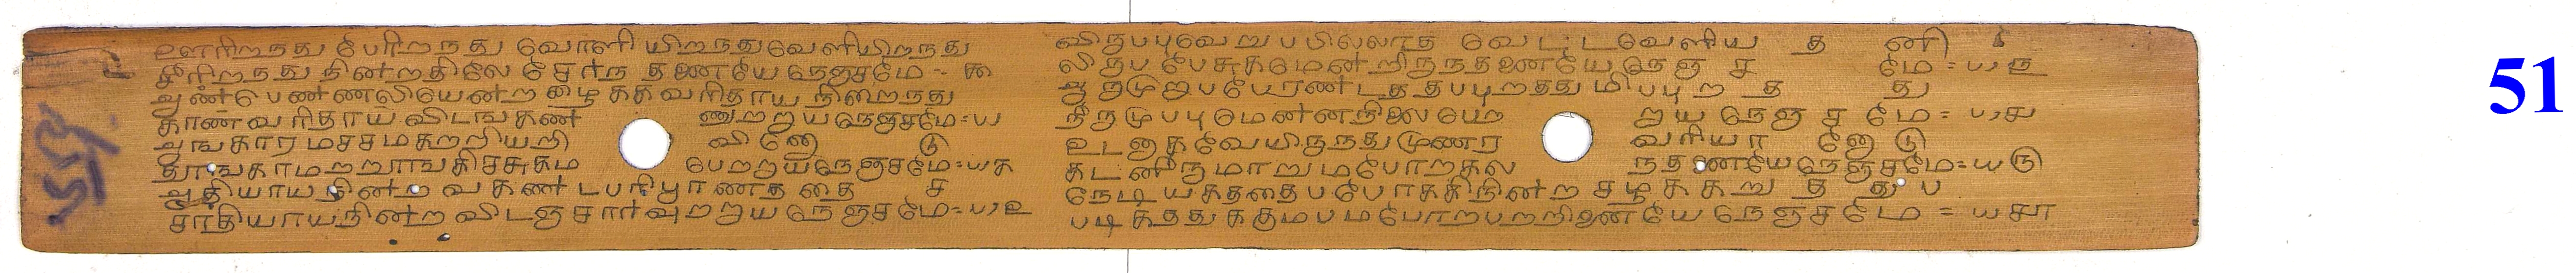 ஊனிறநது போறிறநது வோளி யிறநதுவேளியிறநது
சீரிறநது நின்றதிலே சேர்ந தணையே நெஞசமே = ௯
ஆண்பெண்ணலியென்ற ழைககவரிதாய நிறைநது
காணவரிதாய விடஙகண் ணுறறுயநெஞசமே = ய
ஆஙகார மசசமகறறியறி வினோடு
தூஙகாமறறூஙகிசசுகம பெறறுயநெஞசமே = யக
ஆதியாய நின்ற வகண் டபரிபூரணத தைச
சாதியாயநின்ற விடஞசார்வுறறுய நெஞசமே = ய௨
விருபபுவெறுபபிலலாத வெடடவெளிய தனி
லிருபபேசுகமென்றிருநதணையே நெஞசமே = ய௩
ஆறுமுறுபபேரண்டததபபுறததுமிபபுறதது
நீறுமுபபுமென்னநிலை றுய நெஞசமே = ய௪
உடலுகவேயிருநதுமுணர வரியானோடு
கடனீருமாறுமபோறகல நதணையேநெஞசமே = ய௫
நெடியகததைபபோககிநின்ற சழககறுததுப
படிகததுககுமபமபோறபறறினையே நெஞசமே = ய௬
51